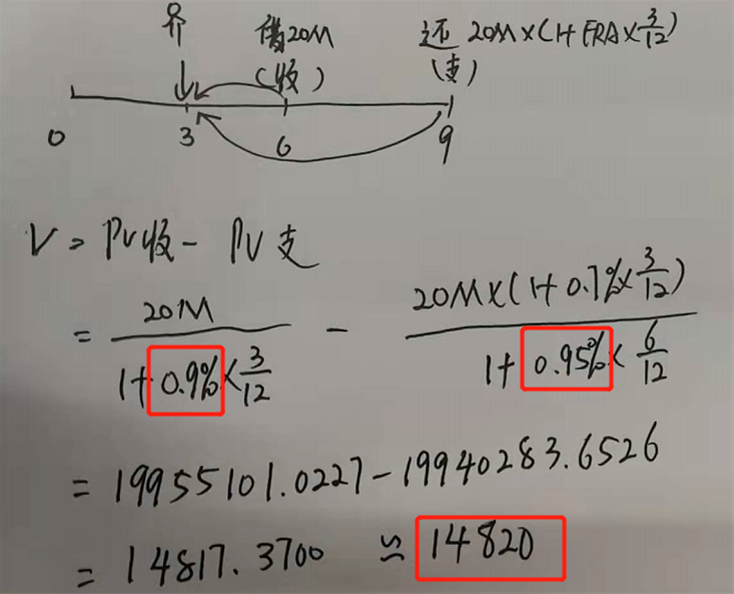 介 借20M 还 20M×(1+FRA×3/12)
(收) (支)
0 3 6 9
V = PV收 - PV支
= 20M/(1+0.9%×3/12) - 20M×(1+0.7%×3/12)/(1+0.95%×6/12)
= 19955101.0227 - 19940283.6526
= 14817.3700 ≌ 14820